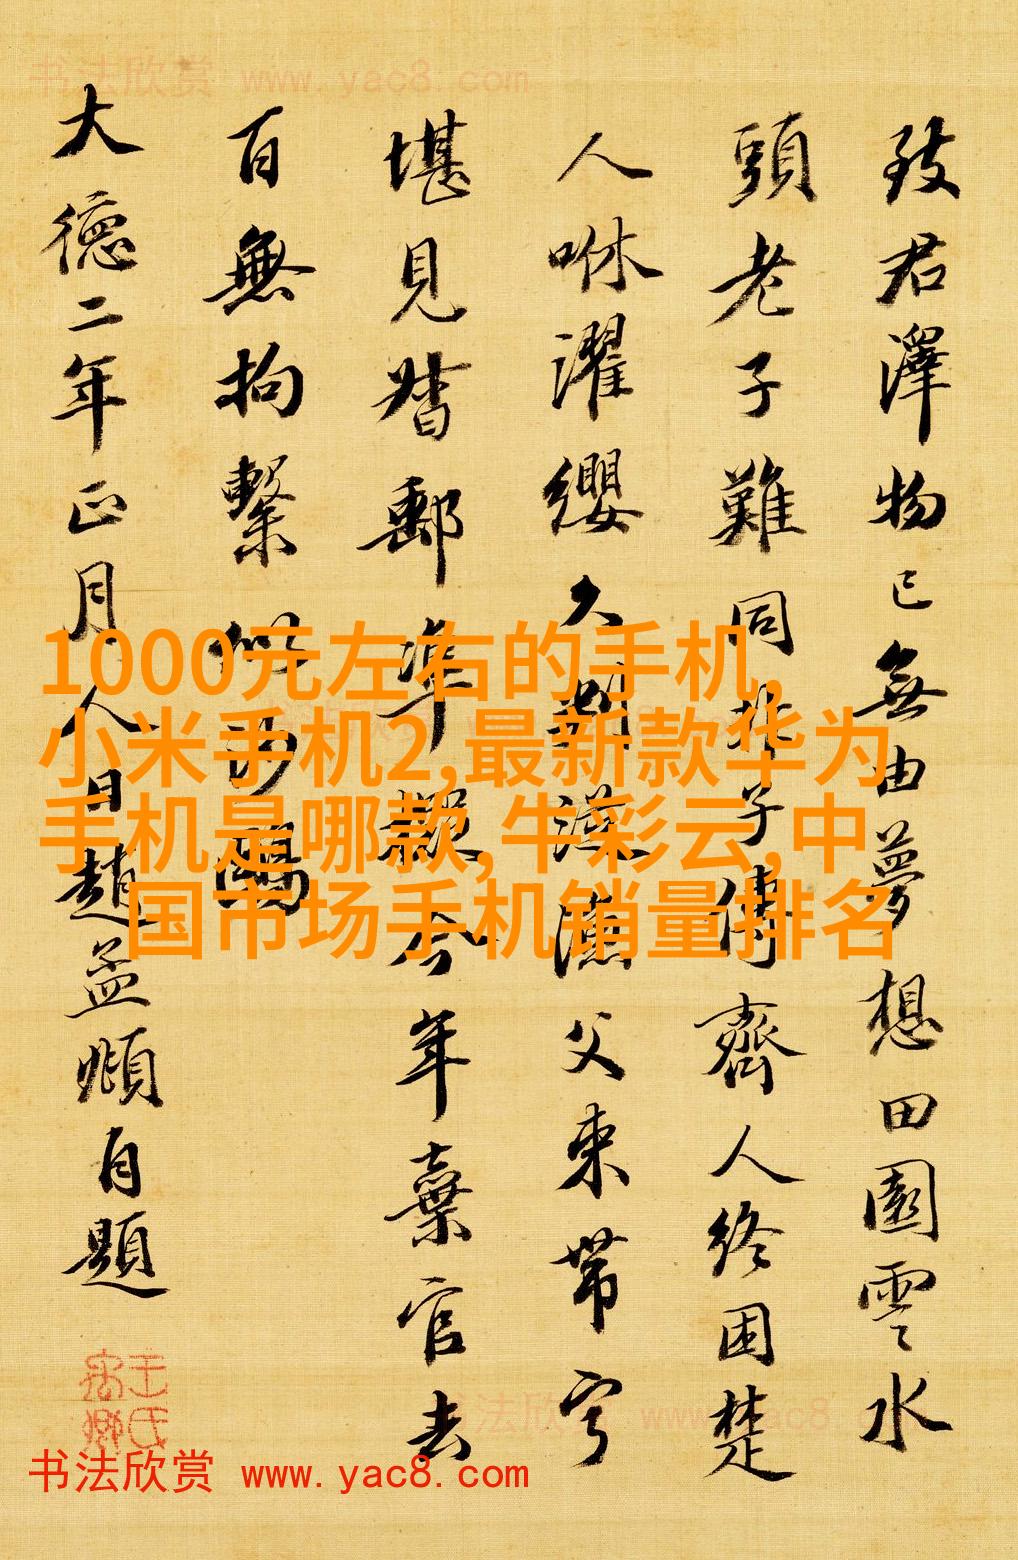 书法欣赏 www.yac8.com
致君澤物已無由夢想田園雲水
頭老子難同非子傳齊人終困楚
人咻濯纓久判漁父束帶寧
堪見督郵準擬今年棄官去
百無拘繫似沙鷗
大德二年正月人日趙孟頫自題
1000元左右的手机,
小米手机2,最新款华为
手机是哪款,牛彩云,中
国市场手机销量排名
书法欣赏 www.yac8.com